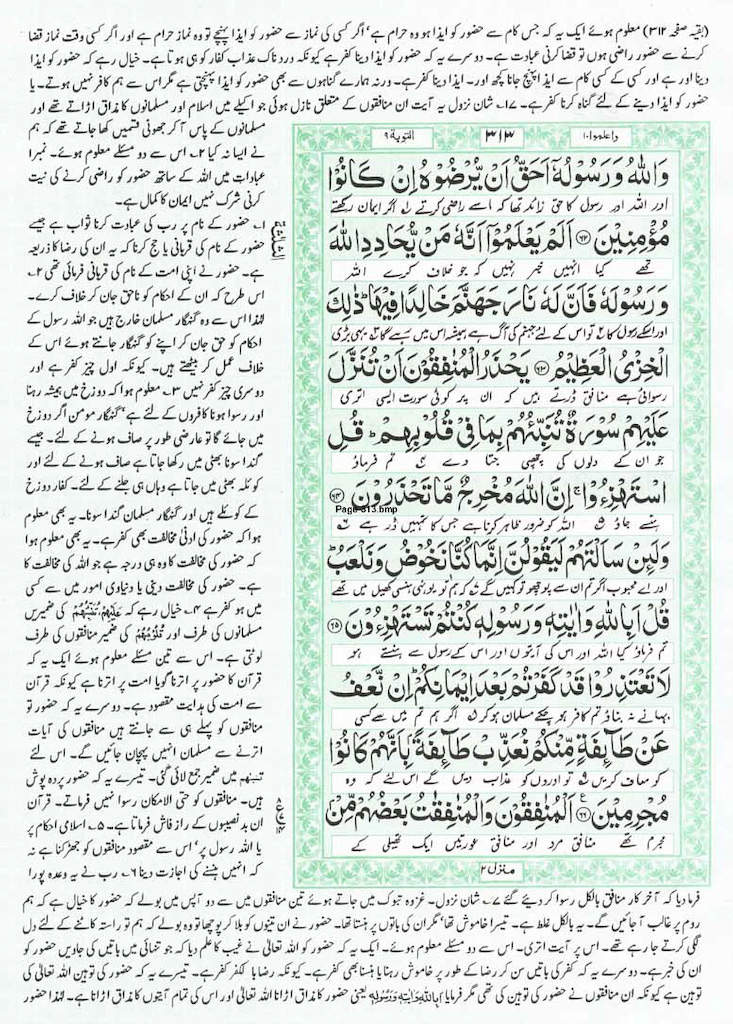 (بقیہ صفحہ ۳۱۲) معلوم ہوئے ایک یہ کہ جس کام سے حضور کو ایذا ہو وہ حرام ہے' اگر کسی کی نماز سے حضور کو ایذا پہنچے تو وہ نماز حرام ہے اور اگر کسی وقت نماز قضا
کرنے سے حضور راضی ہوں تو قضا کرنی عبادت ہے۔ دوسرے یہ کہ حضور کو ایذا دینا کفر ہے کیونکہ دردناک عذاب کفار کو ہی ہوتا ہے۔ خیال رہے کہ حضور کو ایذا
دینا اور ہے اور کسی کے کسی کام سے ایذا پہنچ جانا کچھ اور۔ ایذا دینا کفر ہے۔ ورنہ ہمارے گناہوں سے بھی حضور کو ایذا پہنچتی ہے مگر اس سے ہم کافر نہیں ہوتے۔ یا
حضور کو ایذا دینے کے لئے گناہ کرنا کفر ہے۔ ۱۷؎ شان نزول یہ آیت ان منافقوں کے متعلق نازل ہوئی جو اکیلے میں اسلام اور مسلمانوں کا مذاق اڑاتے تھے اور
مسلمانوں کے پاس آ کر جھوٹی قسمیں کھا جاتے تھے کہ ہم
نے ایسا نہ کیا ۲؎ اس سے دو مسئلے معلوم ہوئے۔ نمبرا
عبادات میں اللہ کے ساتھ حضور کو راضی کرنے کی نیت
کرنی شرک نہیں ایمان کا کمال ہے۔
۱؎ حضور کے نام پر رب کی عبادت کرنا ثواب ہے جیسے
حضور کے نام کی قربانی یا حج کرنا کہ یہ ان کی رضا کا ذریعہ
ہے۔ حضور نے اپنی امت کے نام کی قربانی فرمائی تھی ۲؎
اس طرح کہ ان کے احکام کو ناحق جان کر خلاف کرے۔
لہٰذا اس سے وہ گنہگار مسلمان خارج ہیں جو اللہ رسول کے
احکام کو حق جان کر اپنے کو گنہگار جانتے ہوئے اس کے
خلاف عمل کر بیٹھتے ہیں۔ کیونکہ اول چیز کفر ہے اور
دوسری چیز کفر نہیں ۳؎ معلوم ہوا کہ دوزخ میں ہمیشہ رہنا
اور رسوا ہونا کافروں کے لئے ہے' گنہگار مومن اگر دوزخ
میں جائے گا تو عارضی طور پر صاف ہونے کے لئے۔ جیسے
گندا سونا بھٹی میں رکھا جاتا ہے صاف ہونے کے لئے اور
کوئلہ بھٹی میں جاتا ہے وہاں ہی جلنے کے لئے۔ کفار دوزخ
کے کوئلے ہیں اور گنہگار مسلمان گندا سونا۔ یہ بھی معلوم
ہوا کہ حضور کی ادنیٰ مخالفت بھی کفر ہے۔ یہ بھی معلوم ہوا
کہ حضور کی مخالفت کا وہ ہی درجہ ہے جو اللہ کی مخالفت کا
ہے۔ حضور کی مخالفت دینی یا دنیاوی امور میں سے کسی
میں ہو کفر ہے ۴؎ خیال رہے کہ عَلَیْہِمْ تُنَبِّئُہُمْ کی ضمیریں
مسلمانوں کی طرف اور قُلُوْبِہِمْ کی ضمیر منافقوں کی طرف
لوٹتی ہے۔ اس سے تین مسئلے معلوم ہوئے ایک یہ کہ
قرآن کا حضور پر اترنا گویا امت پر اترنا ہے کیونکہ قرآن
سے امت کی ہدایت مقصود ہے۔ دوسرے یہ کہ حضور تو
منافقوں کو پہلے ہی سے جانتے ہیں منافقوں کی آیات
اترنے سے مسلمان انہیں پہچان جائیں گے۔ اس لئے
تنبئهم میں ضمیر جمع لائی گئی۔ تیسرے یہ کہ حضور پردہ پوش
ہیں۔ منافقوں کو حتی الامکان رسوا نہیں فرماتے۔ قرآن
ان بدنصیبوں کے راز فاش فرماتا ہے۔ ۵؎ اسلامی احکام پر
یا اللہ رسول پر' اس سے مقصود منافقوں کو جھڑکنا ہے نہ
کہ انہیں ہنسنے کی اجازت دینا ۶؎ رب نے یہ وعدہ پورا
واعلموا ۱۰
۳۱۳
التوبة ۹
وَاللّٰهُ وَرَسُوْلُهٗۤ اَحَقُّ اَنْ يُّرْضُوْهُ اِنْ كَانُوْا
اور اللہ اور رسول کا حق زائد تھا کہ اسے راضی کرتے ۱؎ اگر ایمان رکھتے
مُؤْمِنِيْنَ ﴿۶۲﴾ اَلَمْ يَعْلَمُوْۤا اَنَّهٗ مَنْ يُّحَادِدِ اللّٰهَ
تھے کیا انہیں خبر نہیں کہ جو خلاف کرے اللہ
وَرَسُوْلَهٗ فَاَنَّ لَهٗ نَارَ جَهَنَّمَ خَالِدًا فِيْهَا ؕ ذٰلِكَ
اور اسکے رسول کا ۲؎ تو اس کے لئے جہنم کی آگ ہے ہمیشہ اس میں رہے گا ۳؎ یہی بڑی
الْخِزْيُ الْعَظِيْمُ ﴿۶۳﴾ يَحْذَرُ الْمُنٰفِقُوْنَ اَنْ تُنَزَّلَ
رسوائی ہے منافق ڈرتے ہیں کہ ان پر کوئی سورت ایسی اتری
عَلَيْهِمْ سُوْرَةٌ تُنَبِّئُهُمْ بِمَا فِيْ قُلُوْبِهِمْ ؕ قُلِ
جو ان کے دلوں کی چھپی جتا دے ۴؎ تم فرماؤ
اسْتَهْزِءُوْا ۚ اِنَّ اللّٰهَ مُخْرِجٌ مَّا تَحْذَرُوْنَ ﴿۶۴﴾
Page-313.bmp
ہنسے جاؤ ۵؎ اللہ کو ضرور ظاہر کرنا ہے جس کا تمہیں ڈر ہے ۶؎
وَلَىِٕنْ سَاَلْتَهُمْ لَيَقُوْلُنَّ اِنَّمَا كُنَّا نَخُوْضُ وَنَلْعَبُ ؕ
اور اے محبوب اگر تم ان سے پوچھو تو کہیں گے ۷؎ کہ ہم تو یونہی ہنسی کھیل میں تھے
قُلْ اَبِاللّٰهِ وَاٰيٰتِهٖ وَرَسُوْلِهٖ كُنْتُمْ تَسْتَهْزِءُوْنَ ﴿۶۵﴾
تم فرماؤ کیا اللہ اور اس کی آیتوں اور اس کے رسول سے ہنستے ہو
لَا تَعْتَذِرُوْا قَدْ كَفَرْتُمْ بَعْدَ اِيْمَانِكُمْ ؕ اِنْ نَّعْفُ
بہانے نہ بناؤ تم کافر ہو چکے مسلمان ہو کر اگر ہم تم میں سے کسی
عَنْ طَآىِٕفَةٍ مِّنْكُمْ نُعَذِّبْ طَآىِٕفَةًۢ بِاَنَّهُمْ كَانُوْا
کو معاف کریں تو اوروں کو عذاب دیں گے اس لئے کہ وہ
مُجْرِمِيْنَ ﴿۶۶﴾ اَلْمُنٰفِقُوْنَ وَالْمُنٰفِقٰتُ بَعْضُهُمْ مِّنْۢ
مجرم تھے منافق مرد اور منافق عورتیں ایک تھیلی کے
منزل ۲
فرما دیا کہ آخر کار منافق بالکل رسوا کر دیئے گئے ۷؎ شان نزول۔ غزوہ تبوک میں جاتے ہوئے تین منافقوں میں سے دو آپس میں بولے کہ حضور کا خیال ہے کہ ہم
روم پر غالب آ جائیں گے۔ یہ بالکل غلط ہے۔ تیسرا خاموش تھا' مگر ان کی باتوں پر ہنستا تھا۔ حضور نے ان تینوں کو بلا کر پوچھا تو وہ بولے کہ ہم تو راستہ کاٹنے کے لئے دل
لگی کرتے جا رہے تھے۔ اس پر آیت اتری۔ اس سے دو مسئلے معلوم ہوئے۔ ایک یہ کہ حضور کو اللہ تعالیٰ نے غیب کا علم دیا کہ جو تنہائی میں باتیں کی جاویں حضور کو
ان کی خبر ہے۔ دوسرے یہ کہ کفر کی باتیں سن کر رضا کے طور پر خاموش رہنا یا ہنسنا بھی کفر ہے۔ کیونکہ رضا بالکفر کفر ہے۔ تیسرے یہ کہ حضور کی توہین اللہ تعالیٰ کی
توہین ہے کیونکہ ان منافقوں نے حضور کی توہین کی تھی مگر فرمایا اَبِاللّٰهِ وَاٰيٰتِهٖ وَرَسُوْلِهٖ یعنی حضور کا مذاق اڑانا اللہ تعالیٰ اور اس کی تمام آیتوں کا مذاق اڑانا ہے۔ لہٰذا حضور